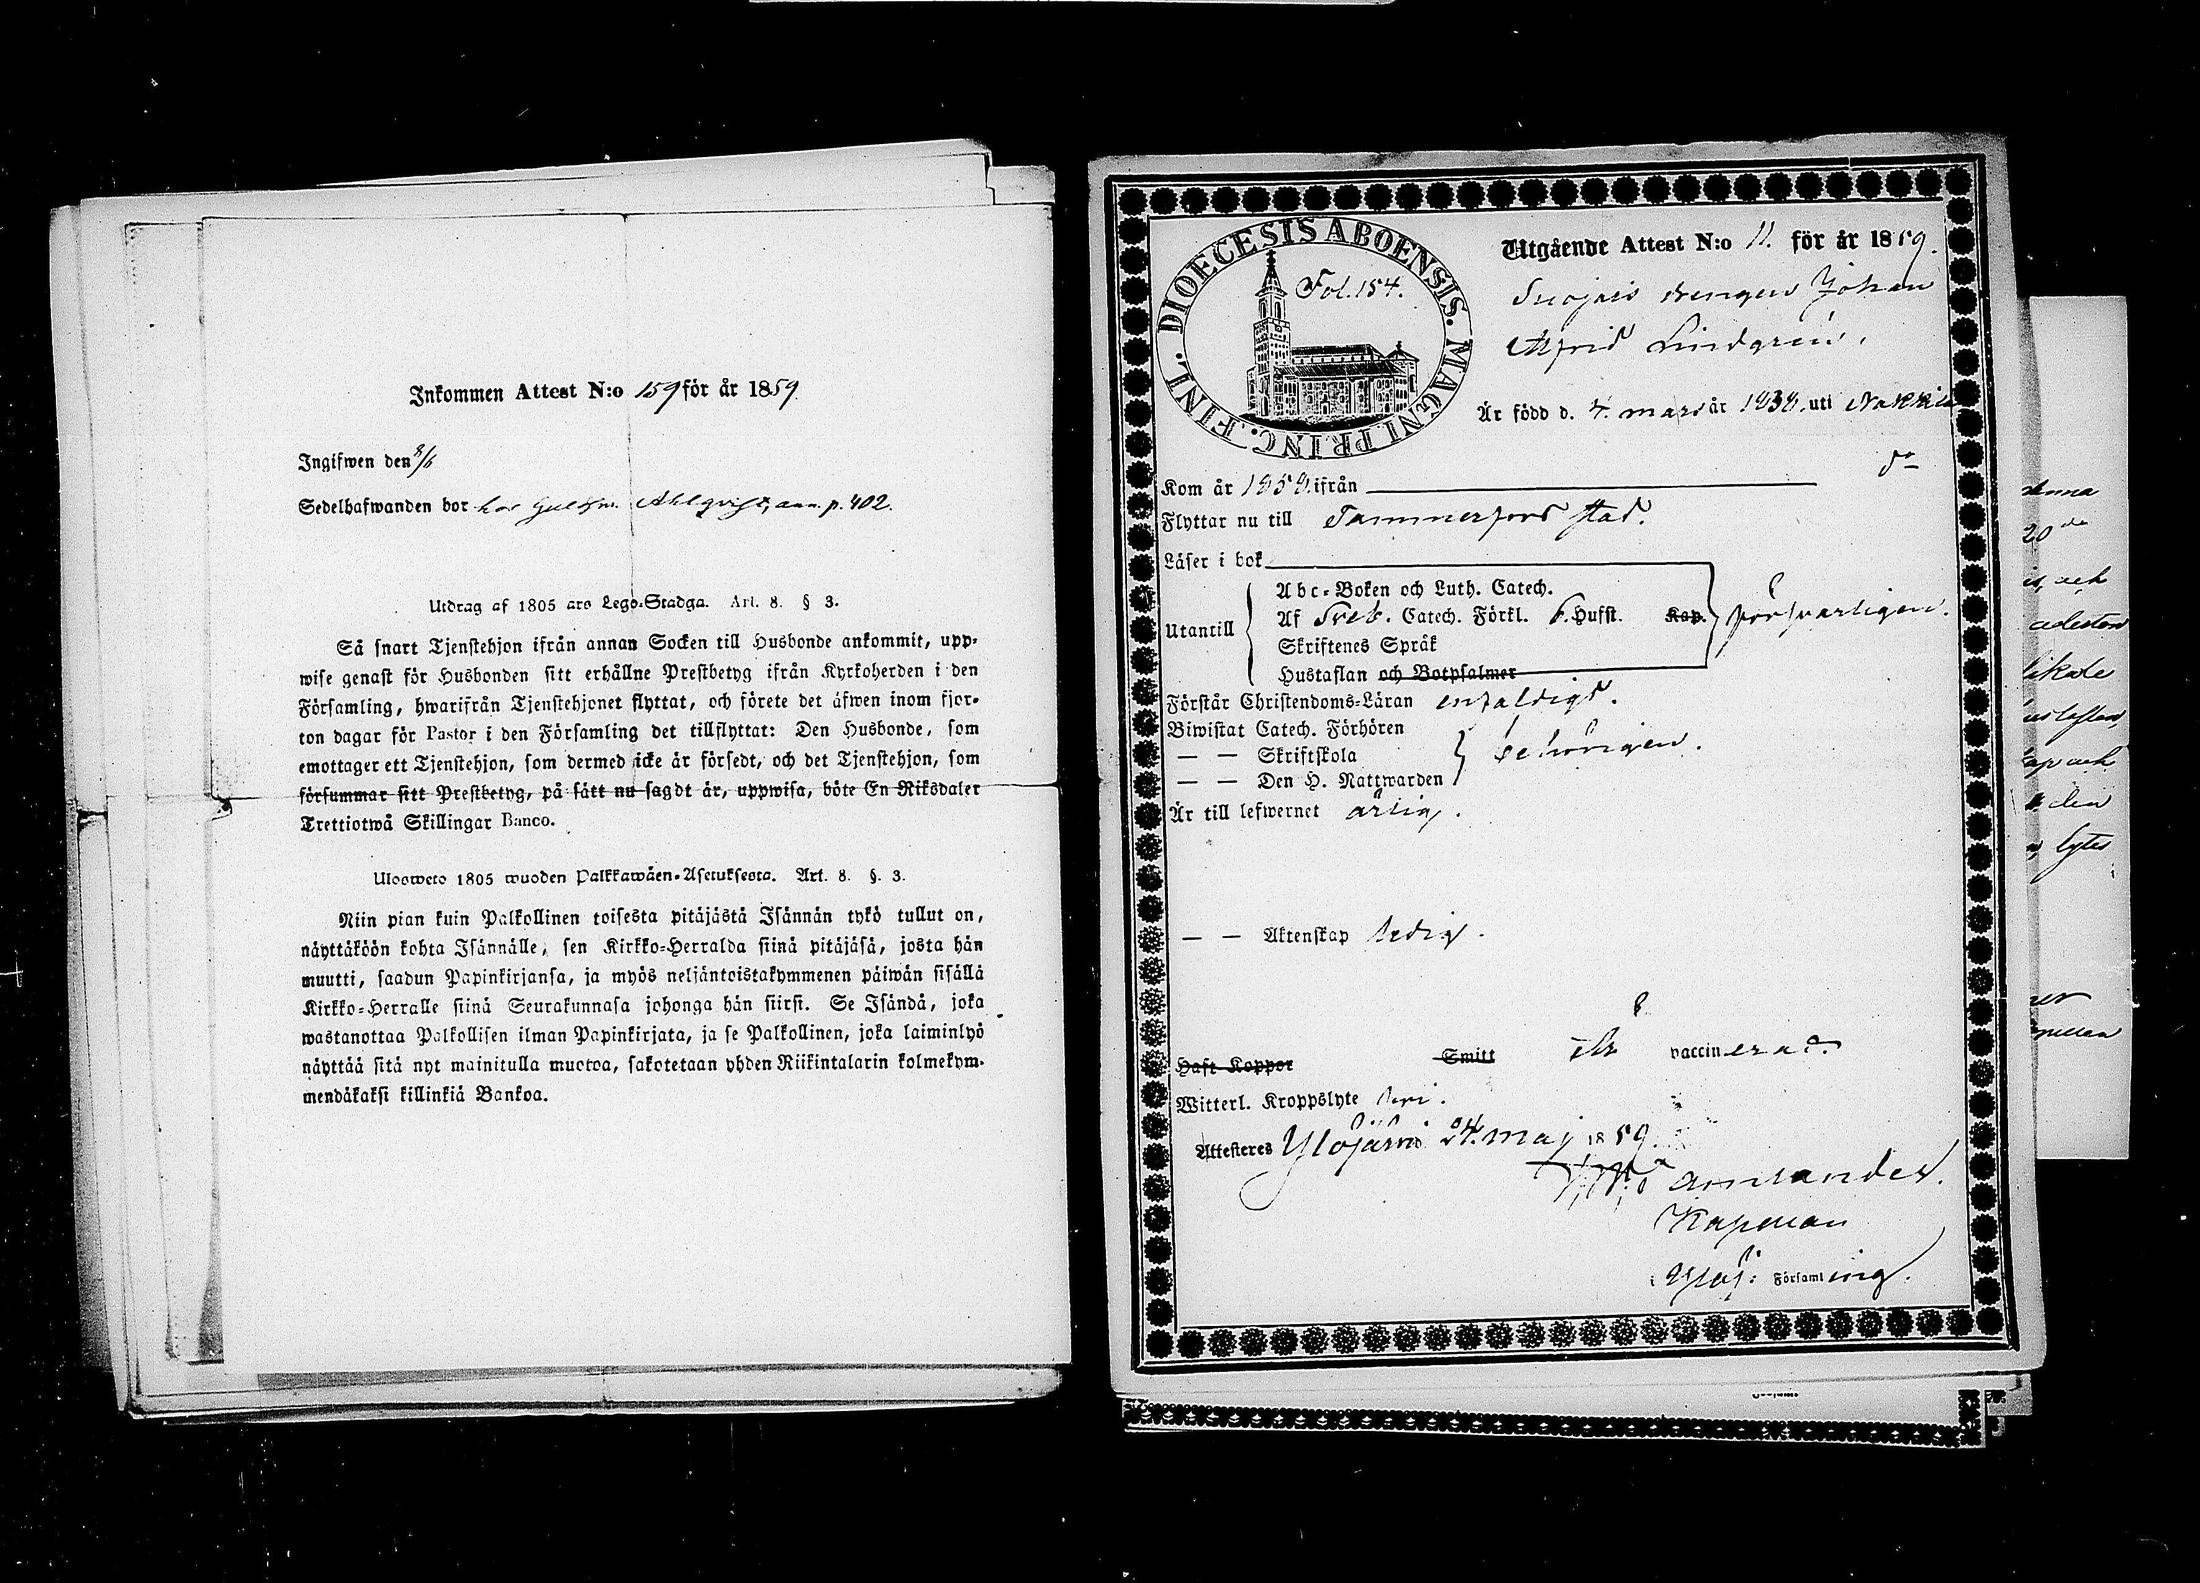 Inkommen Attest N:o 159 för år 1859
Ingifwen den 8/6
Sedelhafwanden bor hos Ahlqvist, ann. p. 402.
Utdrag af 1805 ars Lego-Stadga. Art. 8. § 3.
Så snart Tjenstehjon ifrån annan Socken till Husbonde ankommit, upp-
wise genast för Husbonden sitt erhållne Prestbetyg ifrån Kyrkoherden i den
Församling, hwarifrån Tjenstehjonet flyttat, och förete det äfwen inom fjor-
ton dagar för Pastor i den Församling det tillflyttat: Den Husbonde, som
emottager ett Tjenstehjon, som dermed icke är försedt, och det Tjenstehjon, som
försummar sitt Prestbetyg, på sätt nu sagdt är, uppwisa, böte En Riksdaler
Trettiotwå Skillingar Banco.
Ulosweto 1805 wuoden Palkkawäen-Asetuksesta. Art. 8. §. 3.
Niin pian kuin Palkollinen toisesta pitäjästä Isännän tykö tullut on,
näyttäköön kohta Isännälle, sen Kirkko-Herralda siinä pitäjäsä, josta hän
muutti, saadun Papinkirjansa, ja myös neljäntoistakymmenen päiwän sisällä
Kirkko-Herralle siinä Seurakunnasa johonga hän siirsi. Se Isändä, joka
wastanottaa Palkollisen ilman Papinkirjata, ja se Palkollinen, joka laiminlyö
näyttää sitä nyt mainitulla muotoa, sakotetaan yhden Riikintalarin kolmekym-
mendäkaksi killinkiä Bankoa.
DIOECESIS ABOENSIS. MAGNI PRINC. FINL.
Fol. 154.
Utgående Attest N:o 11. för år 1859.
drengen Johan
Alfrid Lindgren,
Är född d. 4. mars år 1838. uti Nokkia
Kom år 1858. ifrån do
Flyttar nu till Tammerfors stad.
Läser i bok
Utantill
Abc-Boken och Luth. Catech.
Af Sveb. Catech. Förkl. 6. Hufst. Kap.
Skriftenes Språk
Hustaflan och Botpsalmer
försvarligen.
Förstår Christendoms-Läran enfaldigt.
Biwistat Catech. Förhören
— — Skriftskola
— — Den H. Nattwarden
behörigen.
Är till lefwernet ärlig.
— — Äktenskap ledig.
Haft Koppor Smitt är vaccinerad.
Witterl. Kroppslyte fri.
Attesteres Ylöjärvi 24. maj 1859.
Kapellan
i Ylöj: Församling.